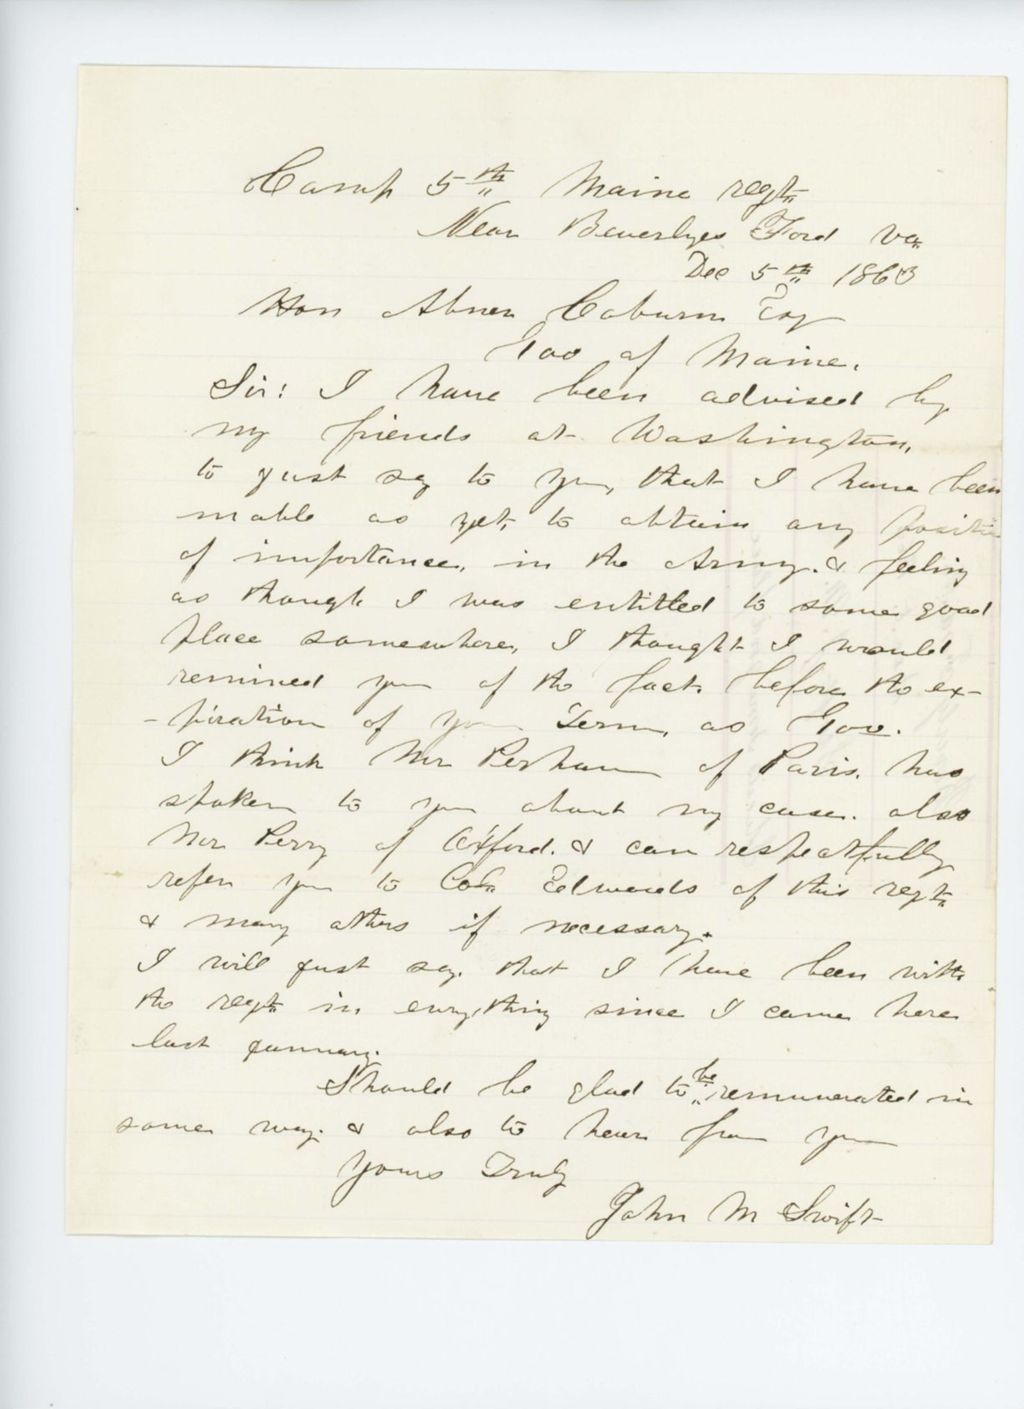 Camp 5th Maine regt
Near Beverlyes Ford Va
Dec 5th 1863
Hon Abner Coburn Esq
Gov of Maine.
Sir: I have been advised by
my friends at Washington,
to just say to you, that I have been
unable as yet, to obtain any position
of importance, in the Army. & feeling
as though I was entitled to some good
place somewhere, I thought I would
remined you of the fact before the ex-
-piration of your Term, as Gov.
I think Mr Perham of Paris. has
spoken to you about my case. also
Mr Perry of Oxford. & can respectfully
refer you to Col. Edwards of this regt
& many others if necessary.
I will just say. that I have been with
the regt in everything since I came here
last January.
Should be glad to be remunerated in
some way. & also to hear from you
Yours Truly
John M Swift